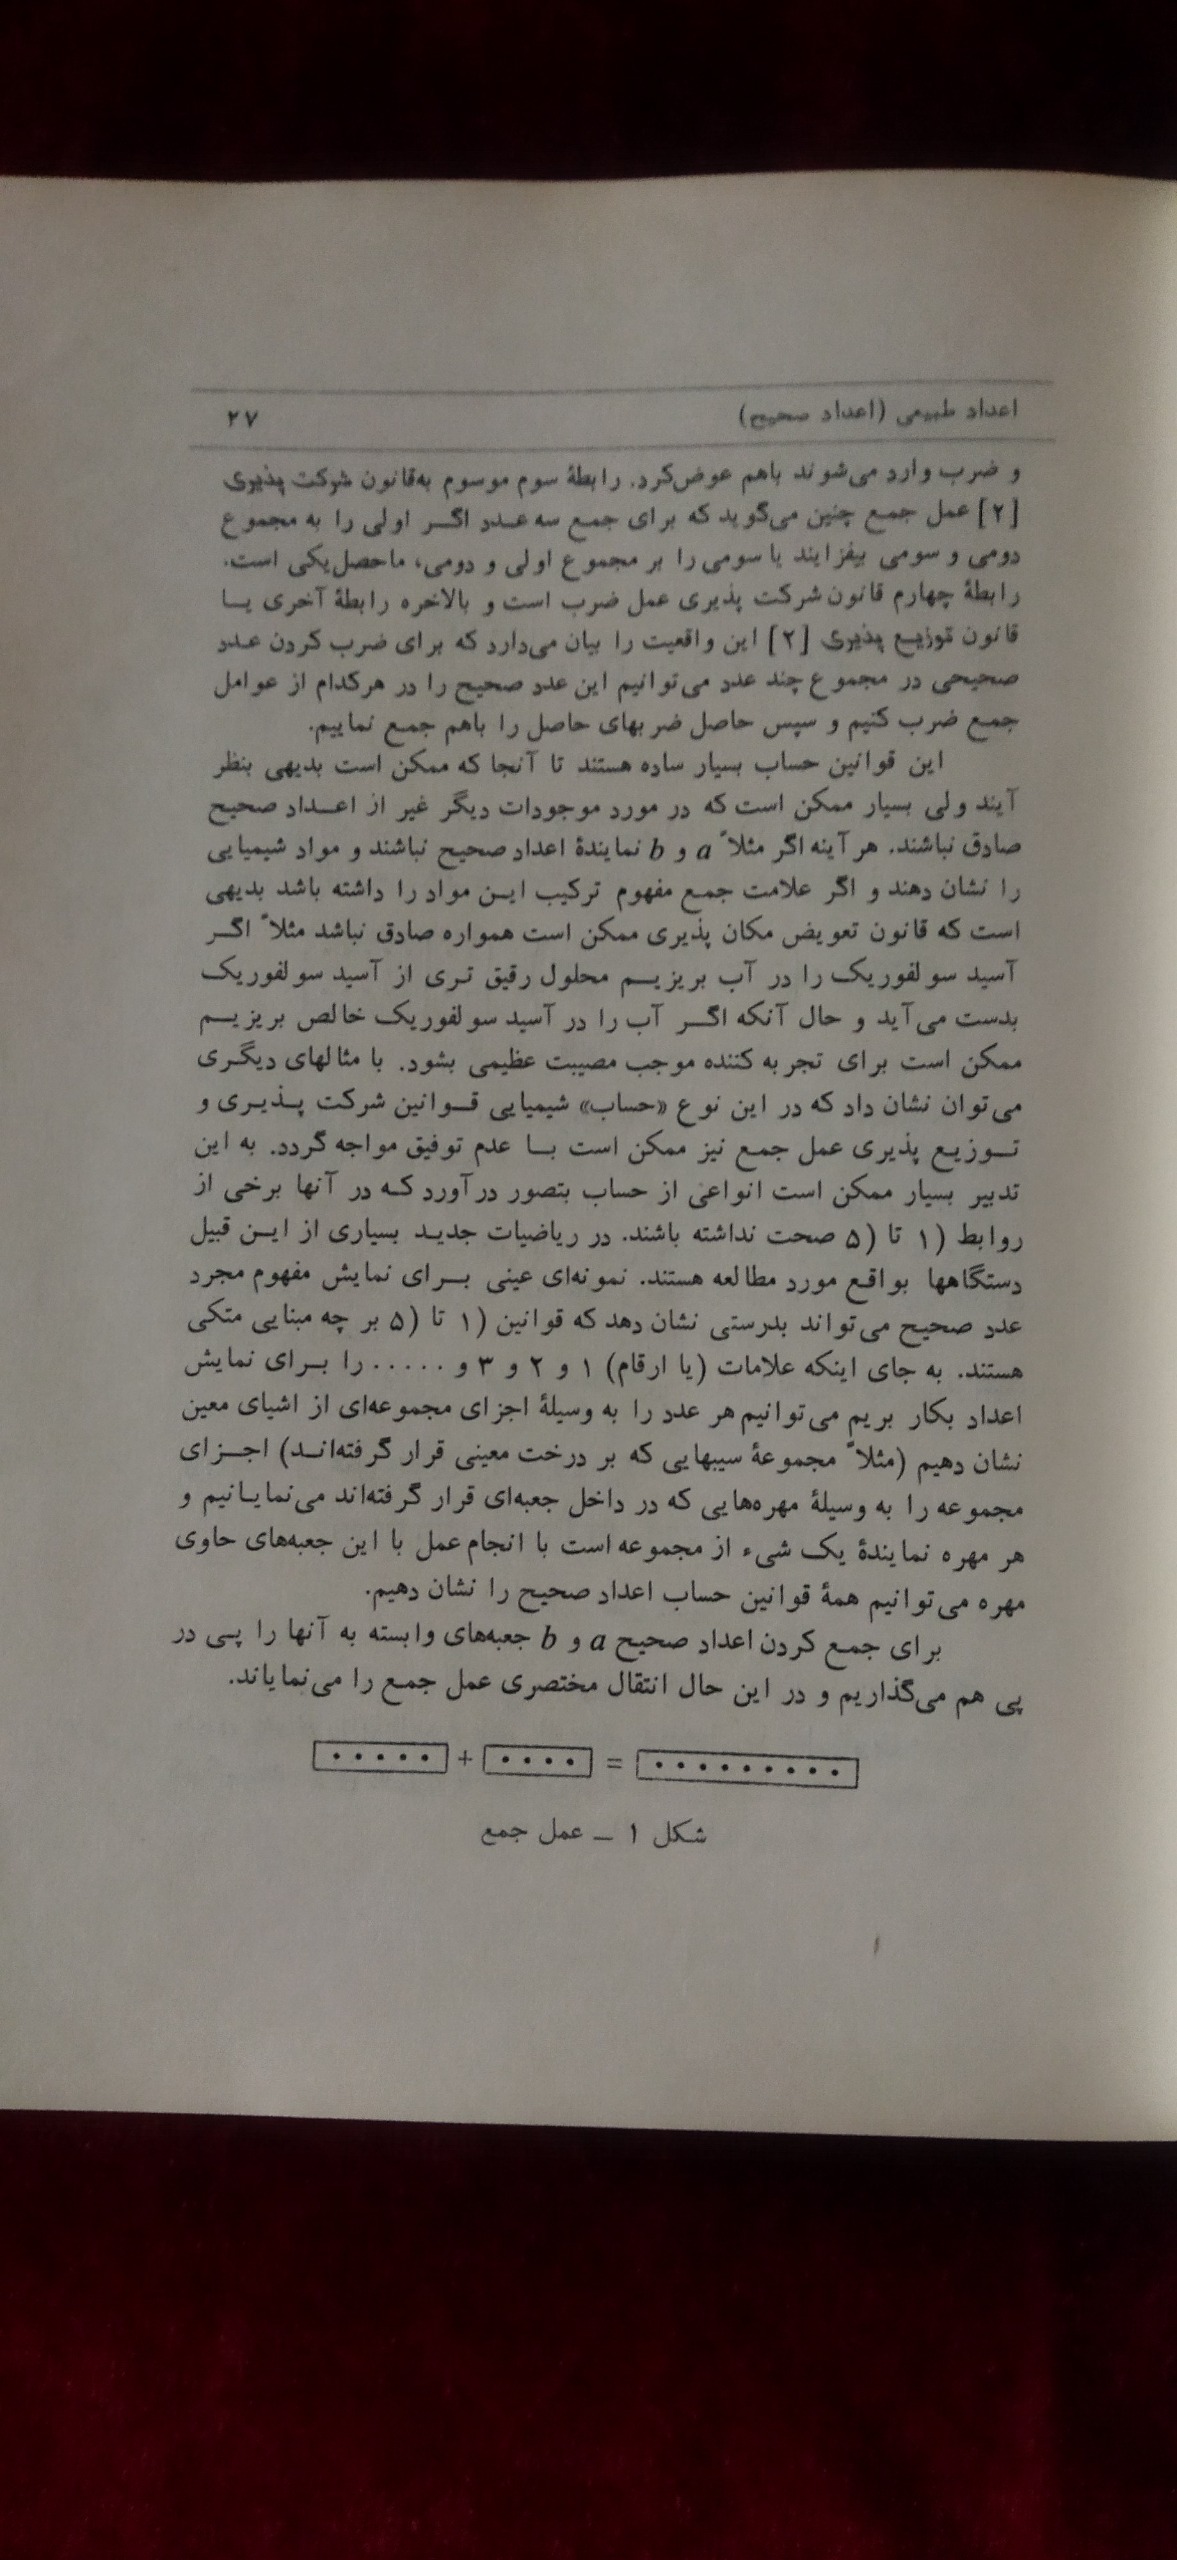 اعداد طبیعی (اعداد صحیح) ۲۷
و ضرب وارد می‌شوند باهم عوض‌کرد. رابطهٔ سوم موسوم به‌قانون شرکت پذیری
[۲] عمل جمع چنین می‌گوید که برای جمع سه عدد اگر اولی را به مجموع
دومی و سومی بیفزایند یا سومی را بر مجموع اولی و دومی، ماحصل‌یکی است.
رابطهٔ چهارم قانون شرکت پذیری عمل ضرب است و بالاخره رابطهٔ آخری یا
قانون توزیع پذیری [۲] این واقعیت را بیان می‌دارد که برای ضرب کردن عدد
صحیحی در مجموع چند عدد می‌توانیم این عدد صحیح را در هرکدام از عوامل
جمع ضرب کنیم و سپس حاصل ضربهای حاصل را باهم جمع نماییم.
این قوانین حساب بسیار ساده هستند تا آنجا که ممکن است بدیهی بنظر
آیند ولی بسیار ممکن است که در مورد موجودات دیگر غیر از اعداد صحیح
صادق نباشند. هرآینه اگر مثلاً a و b نمایندهٔ اعداد صحیح نباشند و مواد شیمیایی
را نشان دهند و اگر علامت جمع مفهوم ترکیب این مواد را داشته باشد بدیهی
است که قانون تعویض مکان پذیری ممکن است همواره صادق نباشد مثلاً اگر
آسید سولفوریک را در آب بریزیم محلول رقیق تری از آسید سولفوریک
بدست می‌آید و حال آنکه اگر آب را در آسید سولفوریک خالص بریزیم
ممکن است برای تجربه کننده موجب مصیبت عظیمی بشود. با مثالهای دیگری
می‌توان نشان داد که در این نوع «حساب» شیمیایی قوانین شرکت پذیری و
توزیع پذیری عمل جمع نیز ممکن است با عدم توفیق مواجه گردد. به این
تدبیر بسیار ممکن است انواعی از حساب بتصور درآورد که در آنها برخی از
روابط (۱ تا (۵ صحت نداشته باشند. در ریاضیات جدید بسیاری از این قبیل
دستگاهها بواقع مورد مطالعه هستند. نمونه‌ای عینی برای نمایش مفهوم مجرد
عدد صحیح می‌تواند بدرستی نشان دهد که قوانین (۱ تا (۵ بر چه مبنایی متکی
هستند. به جای اینکه علامات (یا ارقام) ۱ و ۲ و ۳ و ..... را برای نمایش
اعداد بکار بریم می‌توانیم هر عدد را به وسیلهٔ اجزای مجموعه‌ای از اشیای معین
نشان دهیم (مثلاً مجموعهٔ سیبهایی که بر درخت معینی قرار گرفته‌اند) اجزای
مجموعه را به وسیلهٔ مهره‌هایی که در داخل جعبه‌ای قرار گرفته‌اند می‌نمایانیم و
هر مهره نمایندهٔ یک شیء از مجموعه است با انجام عمل با این جعبه‌های حاوی
مهره می‌توانیم همهٔ قوانین حساب اعداد صحیح را نشان دهیم.
برای جمع کردن اعداد صحیح a و b جعبه‌های وابسته به آنها را پی در
پی هم می‌گذاریم و در این حال انتقال مختصری عمل جمع را می‌نمایاند.
+ =
شکل ۱ ــ عمل جمع